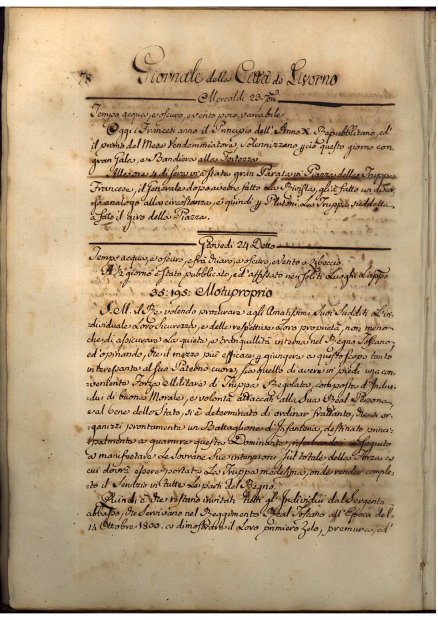 78 Giornale della Città di Livorno
Mercoldì 23. Sn
Tempo acqua, e oscuro, e vento poco variabile
Oggi i Francesi anno il Principio dell' Anno X. Repubblicano, ed'
il primo del Mese Vendemmiatore, Solennizzano già questo giorno con
gran Gala, e Bandiera alla Fortezza
di sera vi è stato gran Parata in Piazza della Truppa
Francese, il Generale dopo averne fatto la Rivista, gli à fatto un discor
so analogo alla circostanza, e quindi i Plutoni La Truppa suddetta
à fatto il giro della Piazza.
Giovedì 24 Detto
Tempo acqua, e oscuro, e frà chiaro, e oscuro, e vento a Libeccio
A ½ giorno è stato pubblicato, ed' affisso ne' soliti Luoghi L'appo
35: 195: Motuproprio
S. M. il Rè volendo procurare agli Amatissimi Suoi Sudditi L'in
dividuale Loro Sicurezza, e delle respettive Loro proprietà, non meno
che di assicurare La quiete, e tranquillità interna nel Regno Toscano;
ed opinando, che il mezzo più efficace a giungere a questo scopo tanto
interessante al suo Paterno cuore, sia quello di avere in piedi una con
veniente Forza Militare di Truppa Regolata, composta d'Indivi
dui di buona Morale, e volontà attaccati alla Sua Real Persona,
e al bene dello Stato, si è determinato di ordinar frattanto, che si or
ganizzi prontamente un Battaglione d'Infanteria, destinato princi
palmente a guarnire questa Dominante, riserbandosi in Seguito
a manifestare Le Sovrane Sue intenzioni sul totale della Forza a
cui dovrà essere portata La Truppa medesima, onde render comple
to il Servizio in tutte Le parti del Regno.
Quindi è che restano invitati tutti gli Individui dal Sergente
abbasso, che Servivano nel Reggimento Real Toscano all' Epoca del
14 Ottobre 1800. a dimostrare il Loro primiero Zelo, premura, ed'